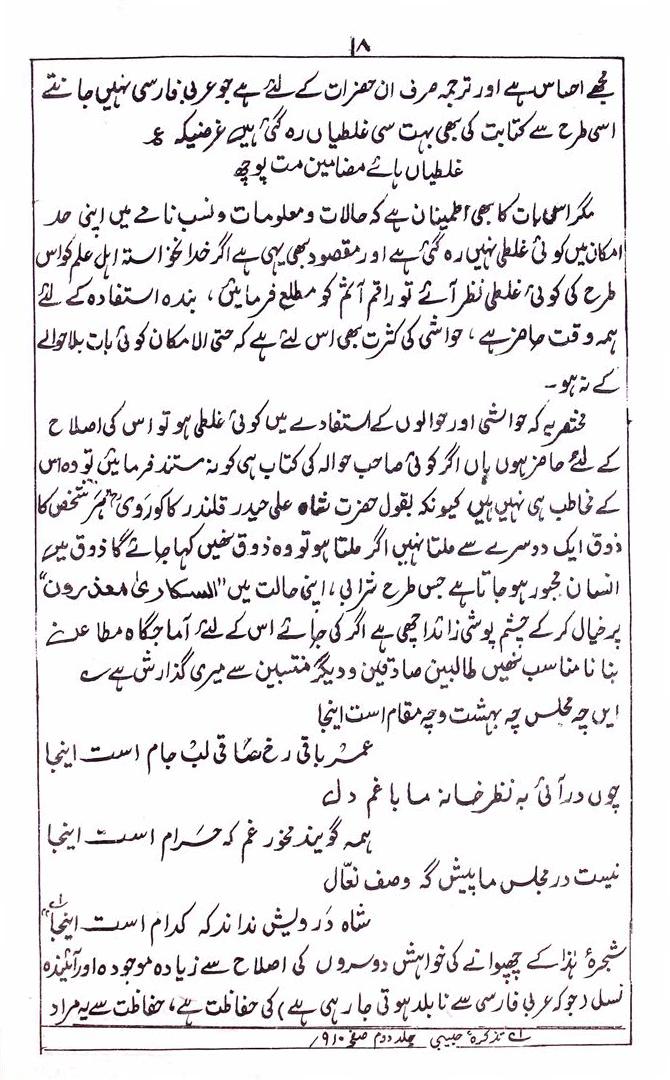 ۱۸
مجھے احساس ہے اور ترجمہ صرف ان حضرات کے لئے ہے جو عربی فارسی نہیں جانتے
اسی طرح سے کتابت کی بھی بہت سی غلطیاں رہ گئی ہیں غرضیکہ ع
غلطیاں ہائے مضامین مت پوچھ
مگر اس بات کا بھی اطمینان ہے کہ حالات و معلومات و نسب نامے میں اپنی حد
امکان میں کوئی غلطی نہیں رہ گئی ہے اور مقصود بھی یہی ہے اگر خدا نخواستہ اہل علم کو اس
طرح کی کوئی غلطی نظر آئے تو راقم آثم کو مطلع فرمائیں، بندہ استفادہ کے لئے
ہمہ وقت حاضر ہے، حواشی کی کثرت بھی اس لئے ہے کہ حتی الامکان کوئی بات بلا حوالے
کے نہ ہو۔
مختصر یہ کہ حواشی اور حوالوں کے استفادے میں کوئی غلطی ہو تو اس کی اصلاح
کے لئے حاضر ہوں ہاں اگر کوئی صاحب حوالہ کی کتاب ہی کو نہ مستند فرمائیں تو وہ اس
کے مخاطب ہی نہیں ہیں کیونکہ بقول حضرت شاہ علی حیدر قلندر کاکوروی "ہر شخص کا
ذوق ایک دوسرے سے ملتا نہیں اگر ملتا ہو تو وہ ذوق نہیں کہا جائے گا ذوق میں
انسان مجبور ہو جاتا ہے جس طرح شرابی، اپنی حالت میں "السکاریٰ معذرون"
پر خیال کر کے چشم پوشی زائد اچھی ہے اگر کی جائے اس کے لئے آماجگاہ مطاعن
بنانا مناسب نہیں طالبین صادقین و دیگر منتسبین سے میری گذارش ہے ؎
ایں چہ مجلس چہ بہشت و چہ مقام است اینجا
عمر باقی رخ ساقی لب جام است اینجا
چوں در آئی بہ نظر خانہ ما با غم دل
ہمہ گویند مخور غم کہ حرام است اینجا
نیست در مجلس ما پیش گہ وصف نعّال
شاہ درویش نداند کہ کدام است اینجا" ؎۱
شجرۂ ہٰذا کے چھپوانے کی خواہش دوسروں کی اصلاح سے زیادہ موجودہ اور آئندہ
نسل (جو کہ عربی فارسی سے نابلد ہوتی جا رہی ہے) کی حفاظت ہے، حفاظت سے یہ مراد
؎۱ تذکرۂ حبیبی جلد دوم صفحہ ۹۱۰